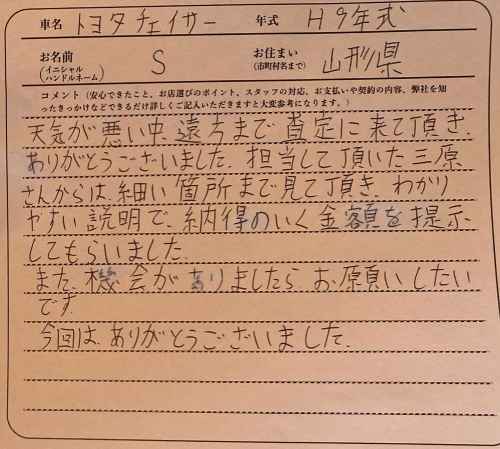 車名 トヨタチェイサー 年式 H9年式
お名前 (イニシャル ハンドルネーム) S お住まい (市町村名まで) 山形県
コメント (安心できたこと、お店選びのポイント、スタッフの対応、お支払いや契約の内容、弊社を知
ったきっかけなどできるだけ詳しくご記入いただきますと大変参考になります。)
天気が悪い中、遠方まで査定に来て頂き、
ありがとうございました。担当して頂いた三原
さんからは、細い箇所まで見て頂き、わかり
やすい説明で、納得のいく金額を提示
してもらいました。
また、機会がありましたら、お願いしたい
です。
今回は、ありがとうございました。